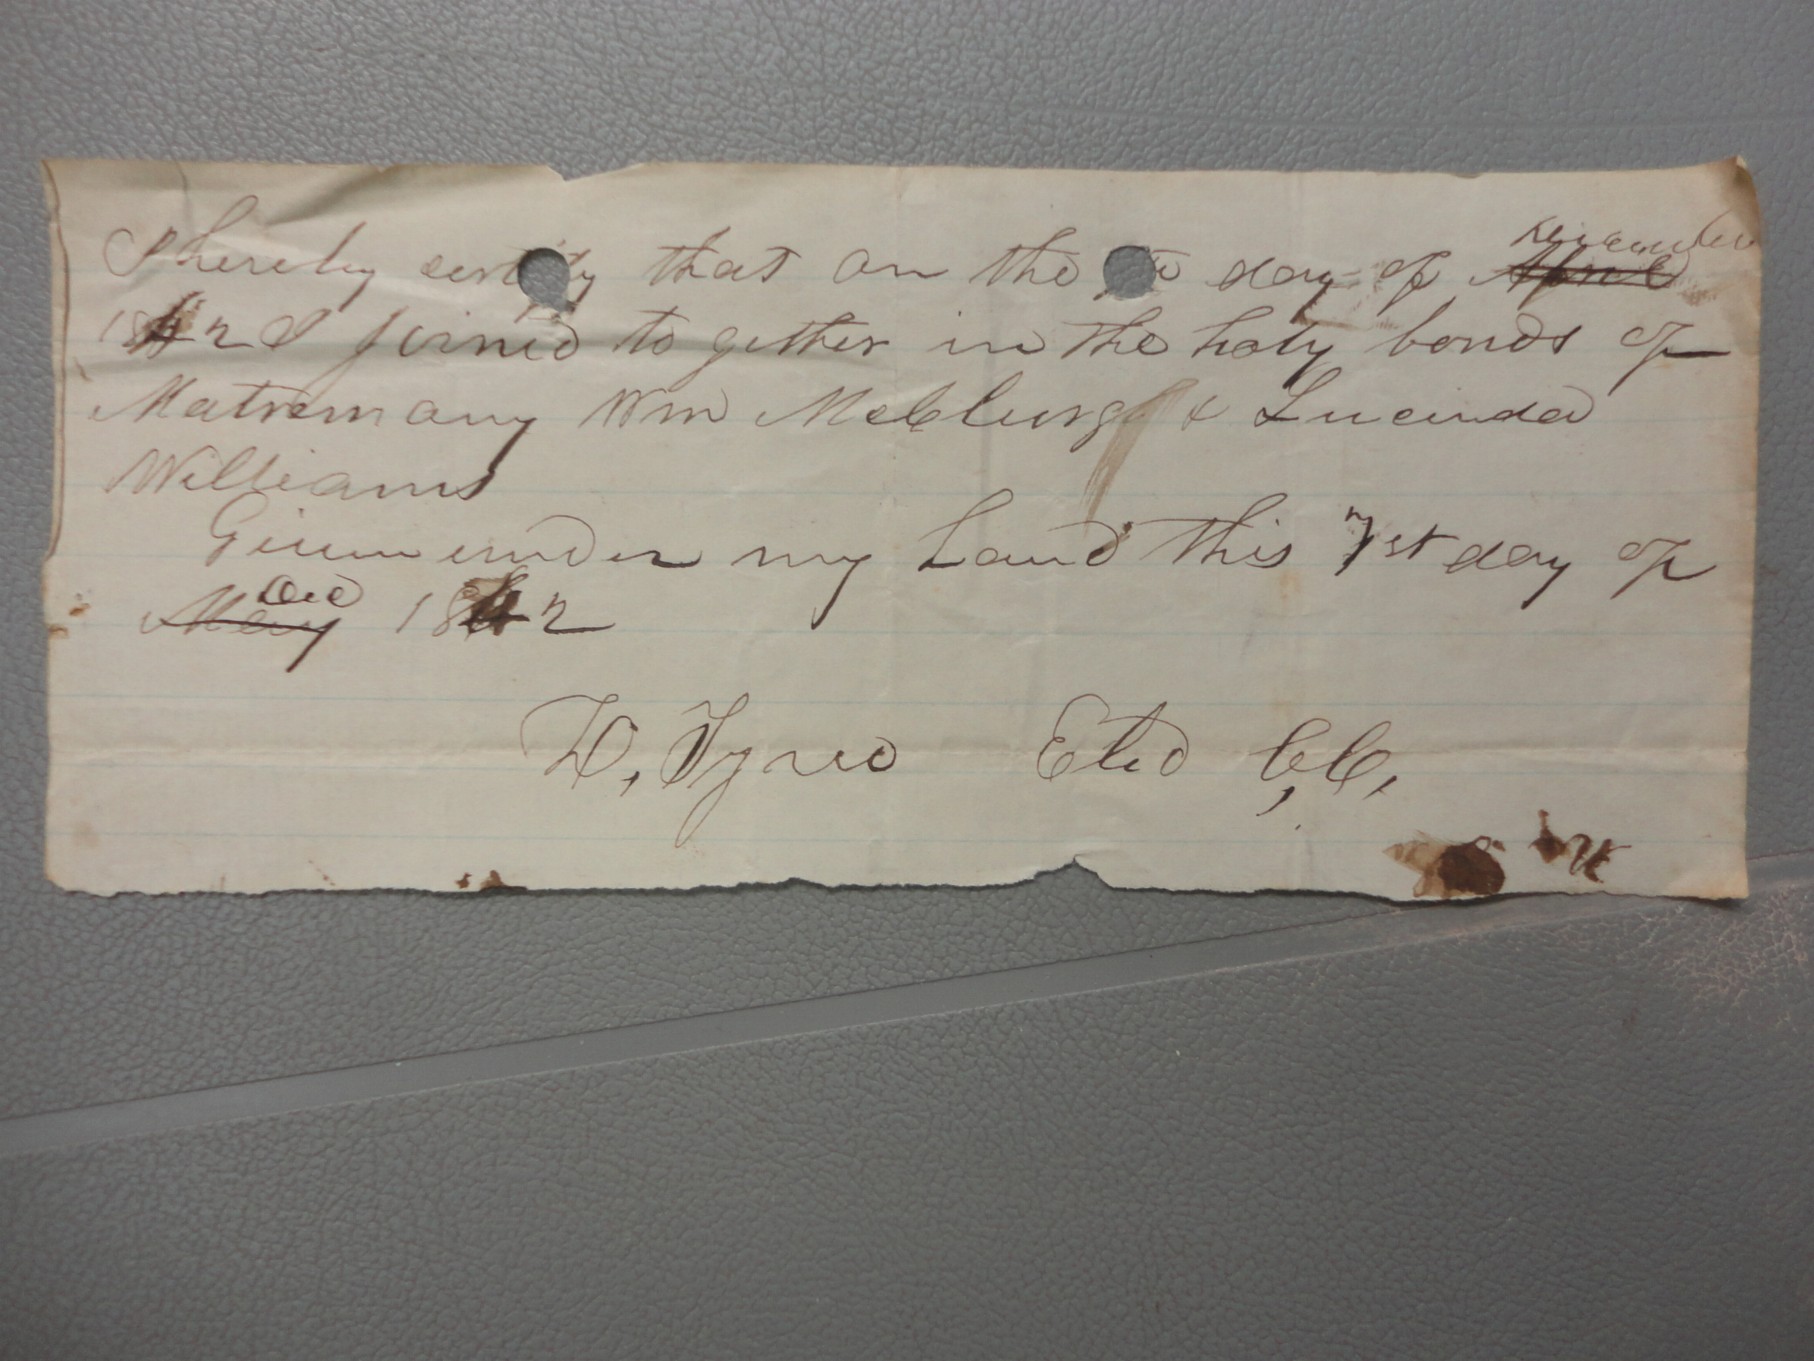 I hereby certify that on the day of April December
1842 I joined to gether in the holy bonds of
Matremany Wm McClurg & Lucinda
Williams
Given under my hand this 7st day of
May Dec 1842
Tyree Eld C, C,